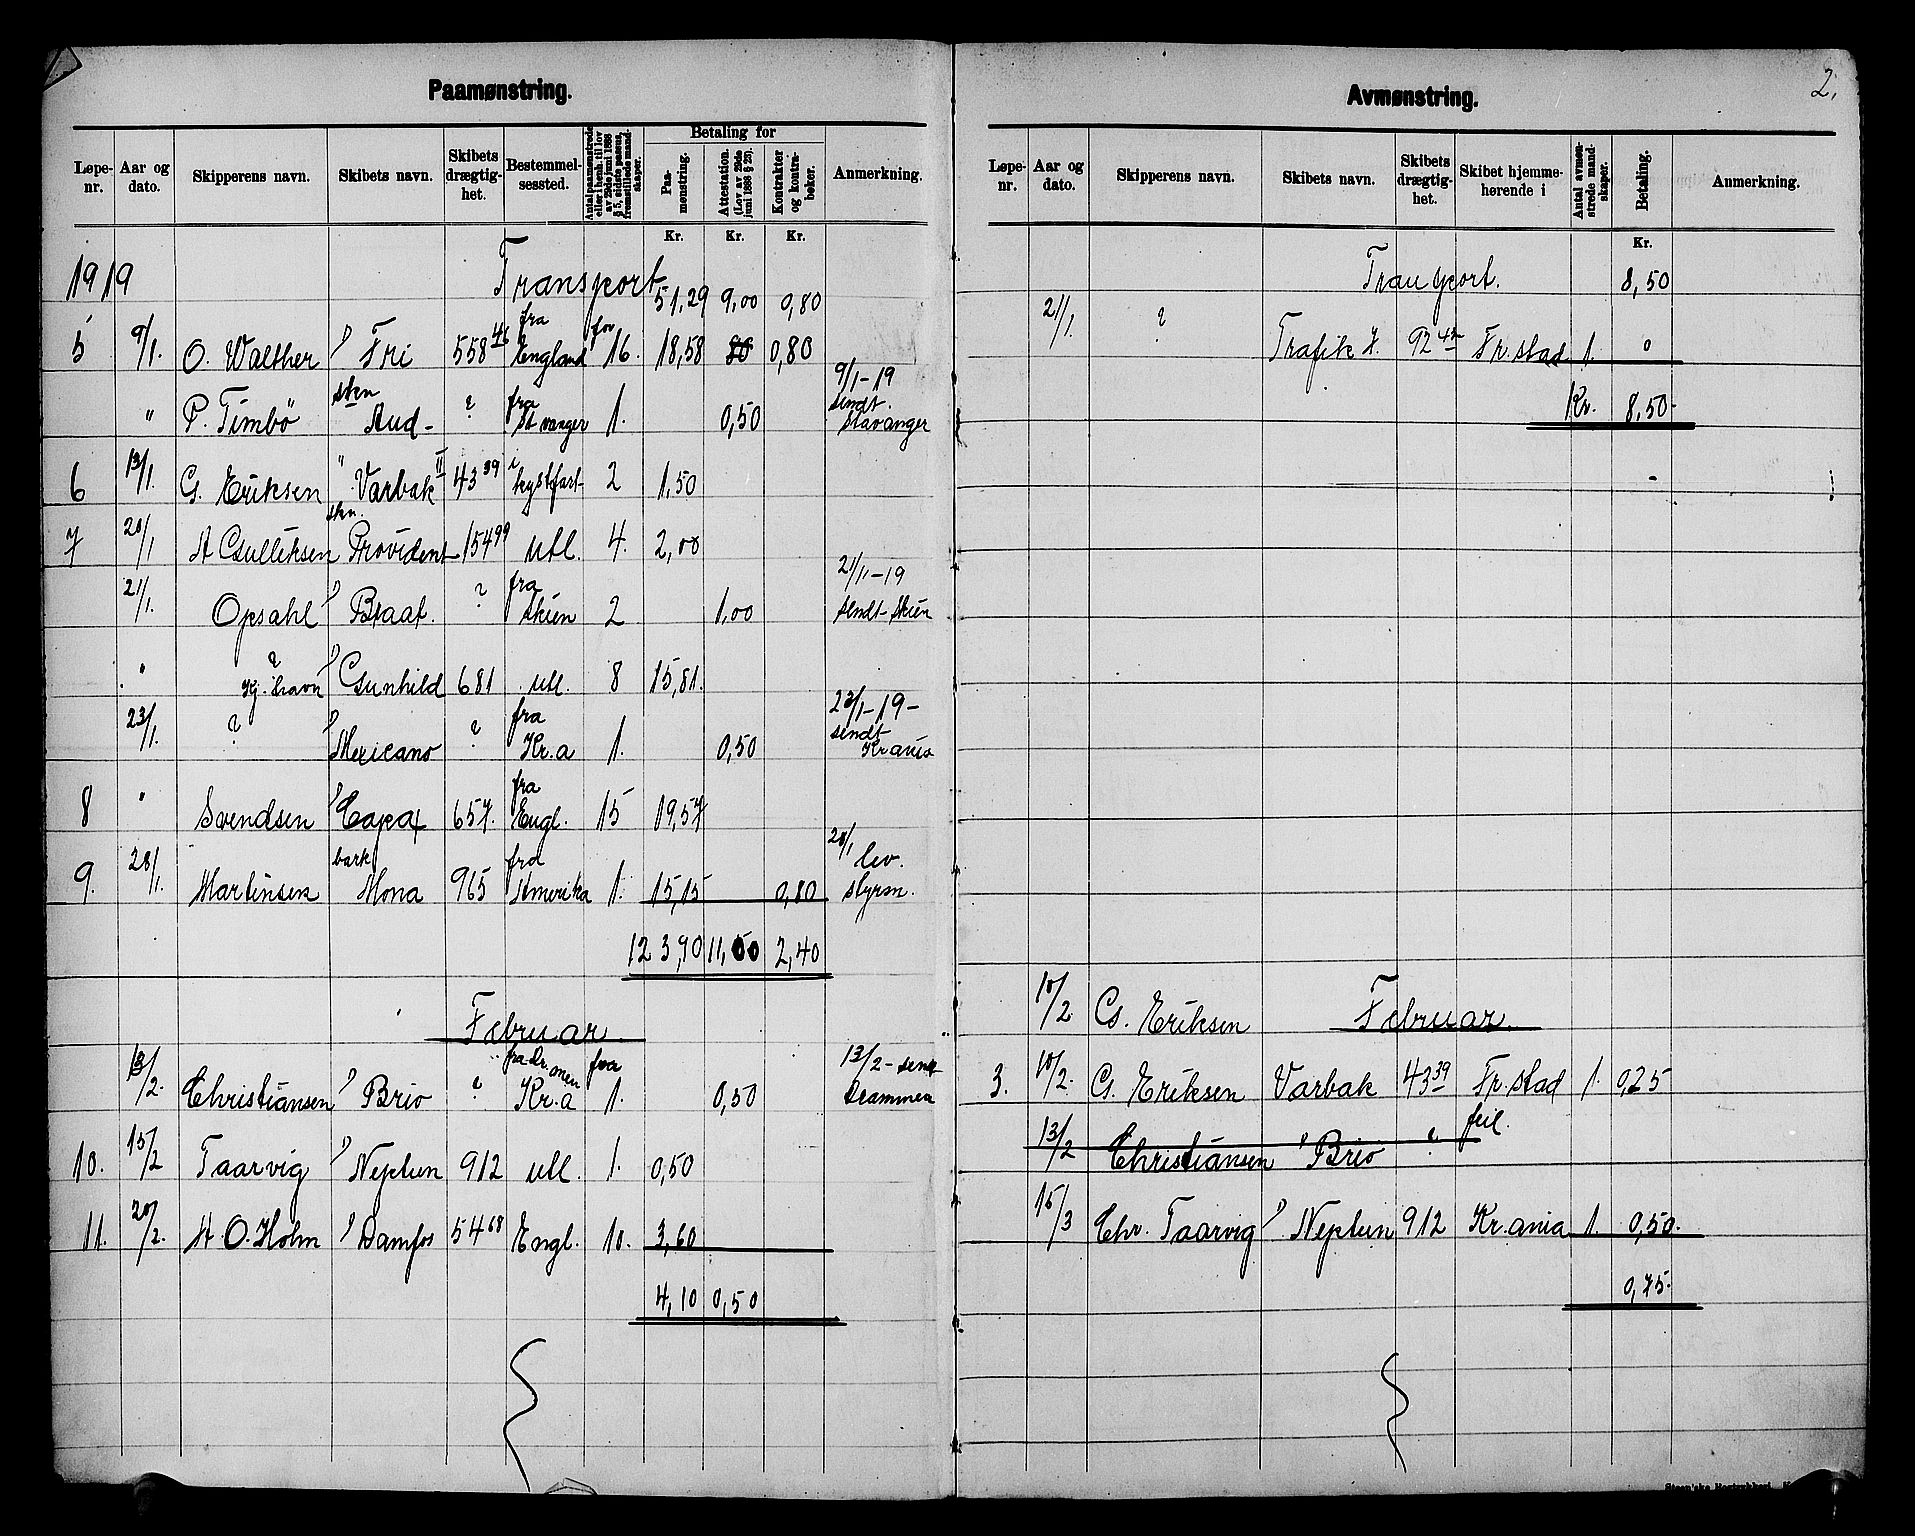 2.
Paamønstring.
Løpe-nr. Aar og dato. Skipperens navn. Skibets navn. Skibets drægtig-het. Bestemmel-sessted. Antal paamønstrede eller i henh. til lov av 29de juni 1888 § 5, sidste passus, fremstillede mand-skaper. Betaling for Paa-mønstring. Attestation. (Lov av 29de juni 1888 § 23). Kontrakter og kontra-bøker. Anmerkning.
Kr. Kr. Kr.
1919 Transport 51,29 9,00 0,80
5 9/1. O. Walther Fri 558 46 fra England for 16. 18,58 80 0,80
" P. Timbö sken Aud - ? fra Stvanger 1. 0,50 9/1-19 sendt. Stavanger
6 13/1. G. Eriksen " Varbak II 43 39 i kystfart- 2 1,50
7 20/1 A Gulliksen skn. Provident 154 99 utl. 4. 2,00
21/1. Opsahl Staat. ? fra Skien 2 1,00 21/1-19 sendt Skien
" ? Kg. havn Gunhild 681 utl. 8 15,81.
23/1. ? Mexicano ? fra Kr.a 1. 0,50 23/1-19- sendt Krania
8 " Svendsen Capax 657. fra Engl. 15 19,57
9. 28/1. Martinsen bark Mona 965 fra Amerika 1. 15,15 0,80 28/1 lev. styrm.
123,90 11,00 2,40
Februar.
13/2. Christiansen Brio ? fra Dr.men Kr.a 1. 0,50 13/2- send Drammen
10. 15/2 Taarvig Neptun 912 utl. 1. 0,50
11. 20/2. A. O. Holm Damfos 54 68 Engl. 10. 3,60
4,10 0,50
Avmønstring.
Løpe-nr. Aar og dato. Skipperens navn. Skibets navn. Skibets drægtig-het. Skibet hjemme-hørende i Antal avmøn-strede mand-skaper. Betaling. Anmerkning.
Kr.
Transport. 8,50
21/1. ? Trafik I. 92 42 Fr.stad 1. 0
Kr. 8,50
10/2 G. Eriksen Februar.
3. 10/2. G. Eriksen Varbak 43 39 Fr.stad 1. 0,25
13/2 Christiansen Brio ? feil.
15/3 Chr. Taarvig Neptun 912 Kr.ania 1. 0,50.
0,75.